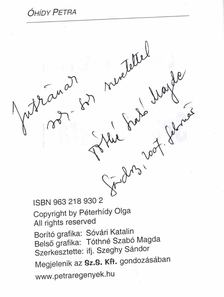 ÓHÍDY PETRA
Jutkának
sok-sok szeretettel
Tóthné Szabó Magda
2007. február
ISBN 963 218 930 2
Copyright by Péterhidy Olga
All rights reserved
Borító grafika: Sóvári Katalin
Belső grafika: Tóthné Szabó Magda
Szerkesztette: ifj. Szeghy Sándor
Megjelenik az Sz.S. Kft. gondozásában
www.petraregenyek.hu